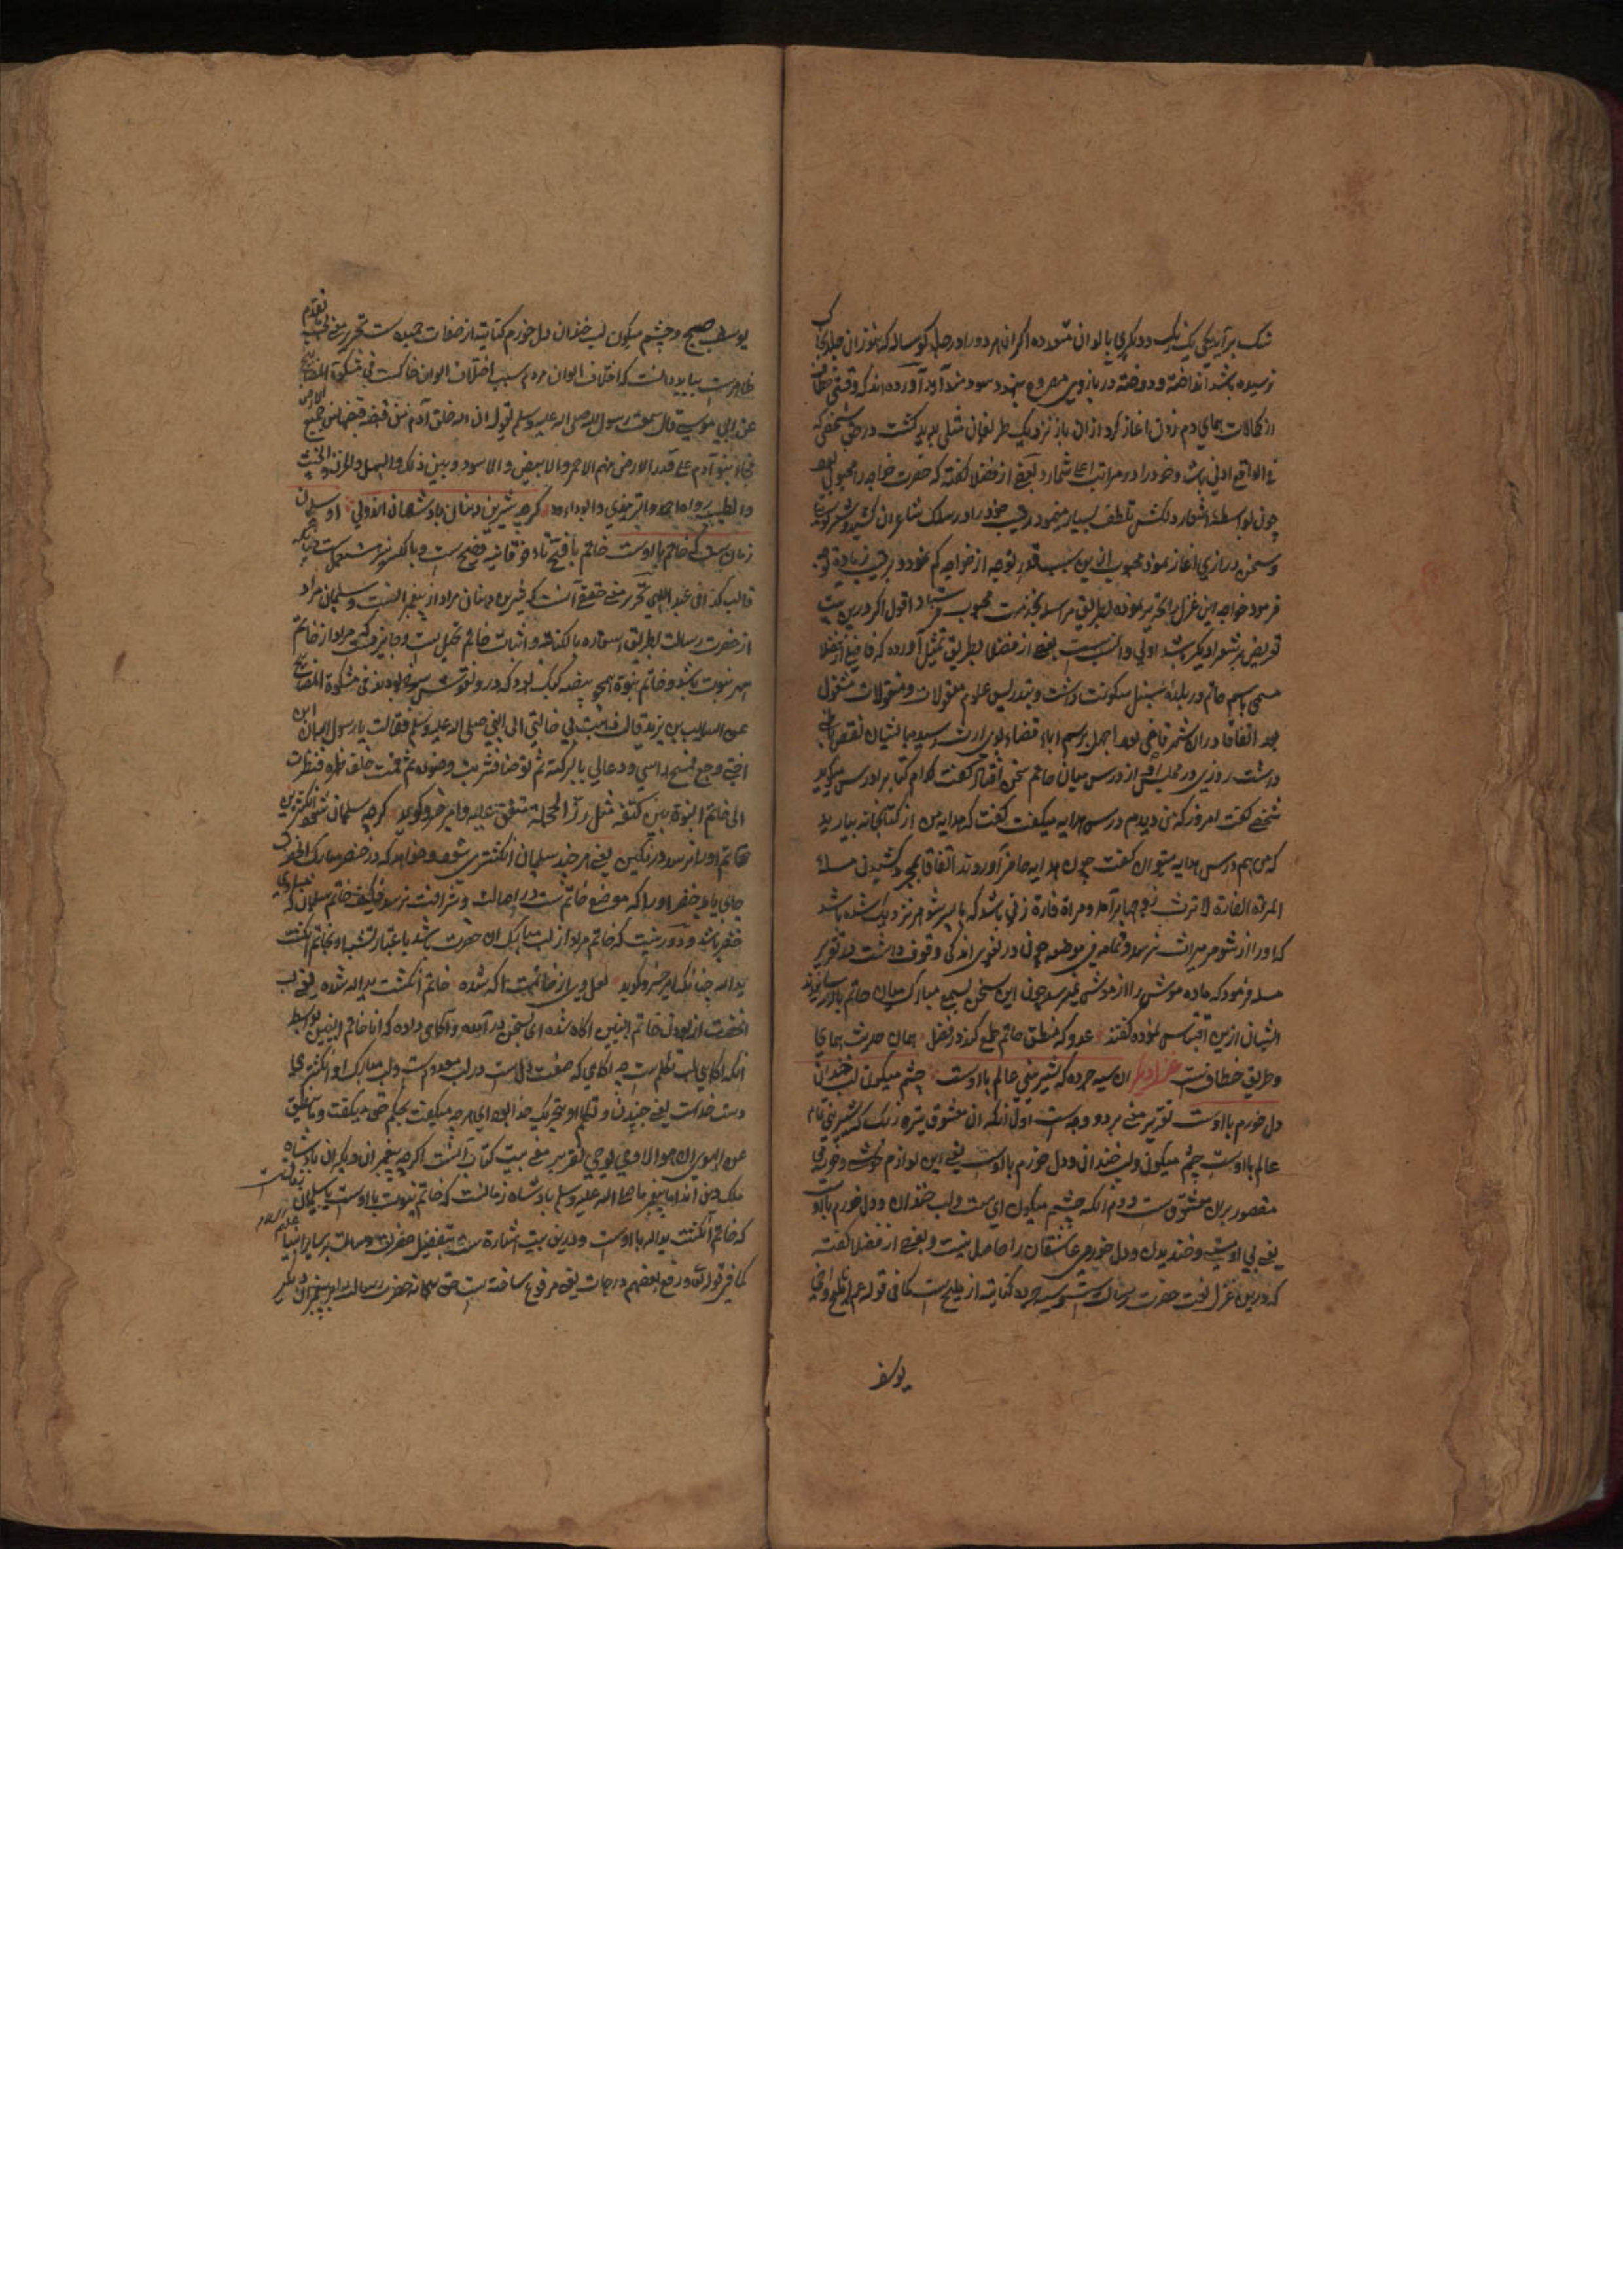 شک برآید یکی یک رنگ و دیگری بالوان متعدده اگر ان هر دو را در جلد کوساله که هنوز ان جلد بجا
نرسیده باشد انداخته و دوخته در بازوی مصروع بندد سودمند آید آورده اند که وقتی خطاب
از کمالات همای دم زدن اغاز کرد از ان باز نزدیک ظریفان مثلی پدید گشت در حق شخصی که
فی الواقع ادنی باشد و خود را در مراتب اعلی شمارد بعضی از فضلا گفته که حضرت خواجه را محبوبی بود
چون بواسطهٔ اشعار دلکش تلطف بسیار مینمود رقیب خود را در سلک شاعران کشید و شعر گویی
و سخن درازی اغاز نمود محبوب ازین سبب قدری توجه از خواجه کم نمود و برقیب زیاده
فرمود خواجه این غزل را تحریر نموده بطریق مراسله بخدمت محبوب فرستاد اقول اگر درین بیت
تعریض بر شعر او دیگر باشد اولی و انسب ست بعضی از فضلا بطریق تمثیل آورده که فاضلی از فضلا
مسمی باسم حاتم در بلدهٔ سنبل سکونت داشت و بتدریس علوم معقولات و منقولات مشغول
بود اتفاقا دران شهر قاضی بود اجهل برسم اباء قضاء بوی ارث رسید با ایشان نقض
داشت روزی در مجلس از درس میان حاتم سخن افتاد گفت کدام کتاب را درس میگوید
شخصی گفت امروز که من دیدم درس هدایه میگفت گفت که هدایه من از کتابخانه بیارید
که من هم درس هدایه میتوان گفت چون هدایه حاضر آوردند اتفاقا بمجرد کشیدن مسله
المرأة الفارة لا ترث زوجها برآمد و مراة فارة زنی باشد که با پسر شوهر نزدیک شده باشد
که او را از شوهر میراث نرسد و تمامه فی موضعه چون در لغوی اندکی وقوف داشت در تقریر
مسله فرمود که ماده موش را از موش نمیرسد چون این سخن بسمع مبارک میان حاتم بالا رسانیدند
ایشان ازین اقتباس نموده گفتند عدو که منطق حاتم طمع کند در فضل همان حدیث همای
و طریق خطاف ست غزل دیگر ان سیه چرده که شیرینی عالم با اوست چشم میگون لب خندان
دل خرم با اوست تقریر معنی بر دو وجه ست اول انکه ان معشوق تیره رنگ که شیرینی تمام
عالم با اوست چشم میگون و لب خندان و دل خرم با اوست یعنی این لوازم خوشی و خوبی
مقصور بران معشوق ست دوم انکه چشم میگون ای مست و لب خندان و دل خرم با اوست
یعنی بی او مستی و خندیدن و دل خرمی عاشقان را حاصل نیست و بعضی از فضلا گفته
که درین غزل نعت حضرت رسالت ست و سیه چرده کنایت از ملیح ست کما فی قوله عم انا املح و اخی
یوسف
یوسف صبیح و چشم میگون لب خندان دل خرم کنایت از صفات حمیده ست تحریر معنی
ظاهرست بباید دانست که اختلاف الوان مردم بسبب اختلاف الوان خاکست فی مشکوة المصابیح
عن ابی موسی قال سمعت رسول الله صلی الله علیه وسلم یقول ان الله خلق آدم من قبضة قبضها من جمیع الارض
فجاء بنو آدم علی قدر الارض منهم الاحمر والابیض والاسود و بین ذلک والسهل والحزن والخبیث
والطیب رواه احمد والترمذی وابوداود گرچه شیرین دهنان پادشهان اند ولی او سلیمان
زمان ست که خاتم با اوست خاتم با فتح تاء فوقانیه فصیح ست و با کسر نیز مستعمل ست
قالب کذا فی عبد اللهی تحریر معنی حقیقی آنست که شیرین دهنان مراد از پیغمبرانست و سلیمان مراد
از حضرت رسالت بطریق استعاره بالکنایه و اثبات خاتم تخیل ست و جایز که مراد از خاتم
مهر نبوت باشد و خاتم نبوة همچو بیضه کبک بود فی مشکوة المصابیح
عن السایب بن یزید قال ذهبت بی خالتی الی النبی صلی الله علیه وسلم فقالت یا رسول الله ان ابن
اختی وجع فمسح راسی و دعا لی بالبرکة ثم توضا فشربت وضوءه ثم قمت خلف ظهره فنظرت
الی خاتم النبوة بین کتفیه مثل زر الحجلة متفق علیه و امیر خسرو گوید گرچه سلیمان شود انگشترین
خاتم او را نرسد در نگین یعنی هر چند سلیمان انگشتری شود و خواهد که در خنصر مبارک
جای یابد خنصر او را که موضع خاتم ست در اصالت و شرافت نرسد فکیف خاتم سلیمان که
خنصر باشد و دور نیست که خاتم مراد از لب مبارک ان حضرت باشد باعتبار تشبیه او بخاتم انگشت
ید الله چنانکه امیر خسرو گوید لعل وی از خاتمیت آگه شده خاتم انگشت ید الله شده یعنی لب
انحضرت از بودن خاتم النبیین آگاه شده ای بسخن در آمده و آگاهی داده که انا خاتم النبیین بواسطه
انکه آگاهی لب تکلم ست چه آگاهی که صفت دل ست در لب معدوم ست و لب مبارک او انگشتری
دست خداست یعنی جنبیدن و تکلم او بتحریک خدا بود ای هرچه میگفت بحکم حق میگفت و ما ینطق
عن الهوی ان هو الا وحی یوحی تقریر معنی بیت کتاب آنست اگرچه پیغمبران دیگران پادشاه
ملک دین اند اما پیغمبر ما صلی الله علیه وسلم پادشاه زمانست که خاتم نبوت با اوست یا سلیمان زمانست
که خاتم انگشت ید الله با اوست و درین بیت اشارة ست بتفضیل حضرت رسالت بر سایر انبیا علیهم السلام
کما فی قوله تعالی ورفع بعضهم درجات یعنی مرفوع ساخته ست حق سبحانه حضرت رسالت را بر پیغمبران دیگر